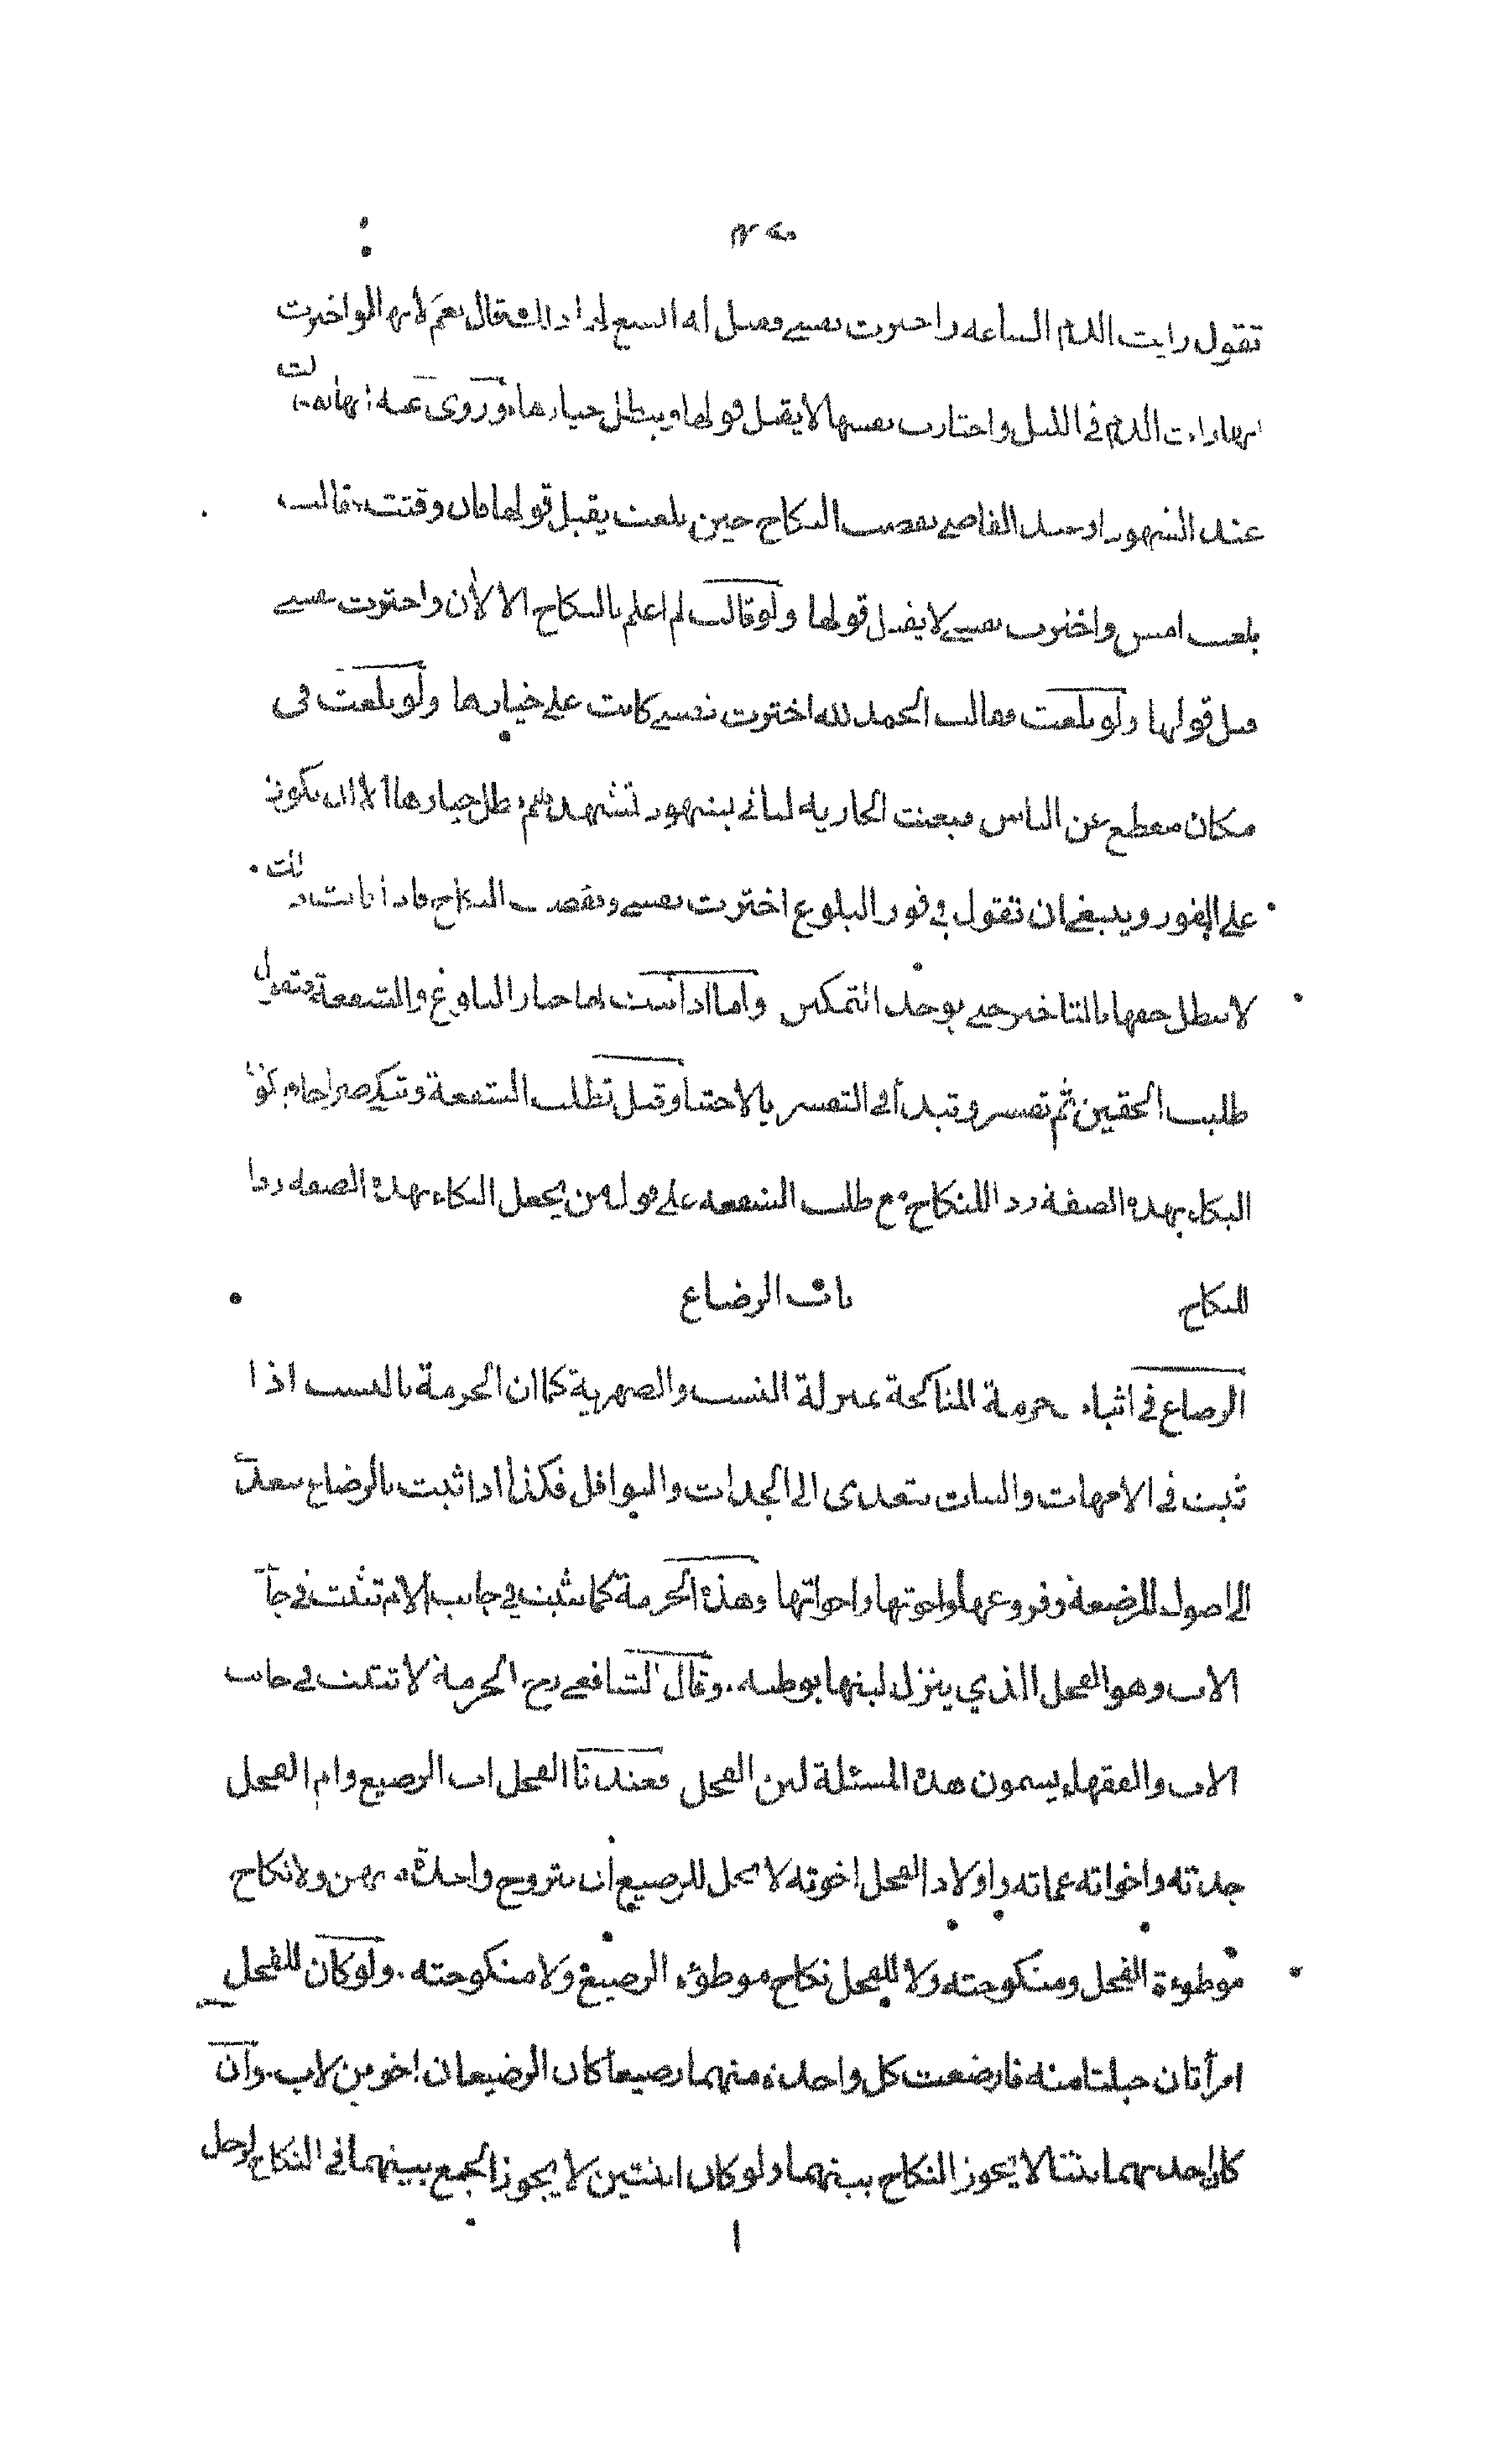 تقول رايت الدم الساعه واخترت نفسي فقيل له ايسع لها ذلك قال نعم لانها لو اخبرت
انها رات الدم في الليل واختارت نفسها لا يقبل قولها ويبطل خيارها وروى عنه انها لو قالت
عند الشهود او عند القاضي نقضت النكاح حين بلغت يقبل قولها فان وقتت فقالت
بلغت امس واخترت نفسي لا يقبل قولها ولو قالت لم اعلم بالنكاح الا الان واخترت نفسي
قبل قولها ولو بلغت فقالت الحمد لله اخترت نفسي كانت على خيارها ولو بلغت في
مكان منقطع عن الناس فبعثت الجاريه لتاتي بشهود تشهدهم بطل خيارها الا ان يكون
على الفور وينبغي ان تقول في فور البلوغ اخترت نفسي ونقضت النكاح فاذا قالت ذلك
لا يبطل حقها بالتاخير حتى يوجد التمكين واما اذا ثبت لها خيار البلوغ والشفعة فتقول
طلبت الحقين ثم تفسر وتبدأ في التفسير بالاختيار وقيل تطلب الشفعة وتبكي
البكاء بهذه الصفة ردا للنكاح مع طلب الشفعه على قول من يجعل البكاء بهذه الصفه ردا
للنكاح باب الرضاع
الرضاع في اثبات حرمة المناكحة بمنزلة النسب والصهرية كما ان الحرمة بالنسب اذا
ثبت في الامهات والبنات يتعدى الى الجدات والنوافل فكذا اذا ثبت بالرضاع يتعدى
الى اصول المرضعة وفروعها واخوتها واخواتها وهذه الحرمة كما يثبت في جانب الام تثبت في جانب
الاب وهو الفحل الذي ينزل لبنها بوطئه وقال الشافعي رح الحرمة لا تثبت في جانب
الاب والفقهاء يسمون هذه المسئلة لبن الفحل فعندنا الفحل اب الرضيع وام الفحل
جدته واخواته عماته واولاد الفحل اخوته لا يحل للرضيع ان يتزوج واحدة منهن ولا نكاح
موطوءة الفحل ومنكوحته ولا للفحل نكاح موطوءة الرضيع ولا منكوحته ولو كان للفحل
امرأتان حبلتا منه فارضعت كل واحدة منهما رضيعا كان الرضيعان اخوين لاب وان
كان احدهما بنتا لا يجوز النكاح بينهما ولو كان ابنتين لا يجوز الجمع بينهما في النكاح لرجل